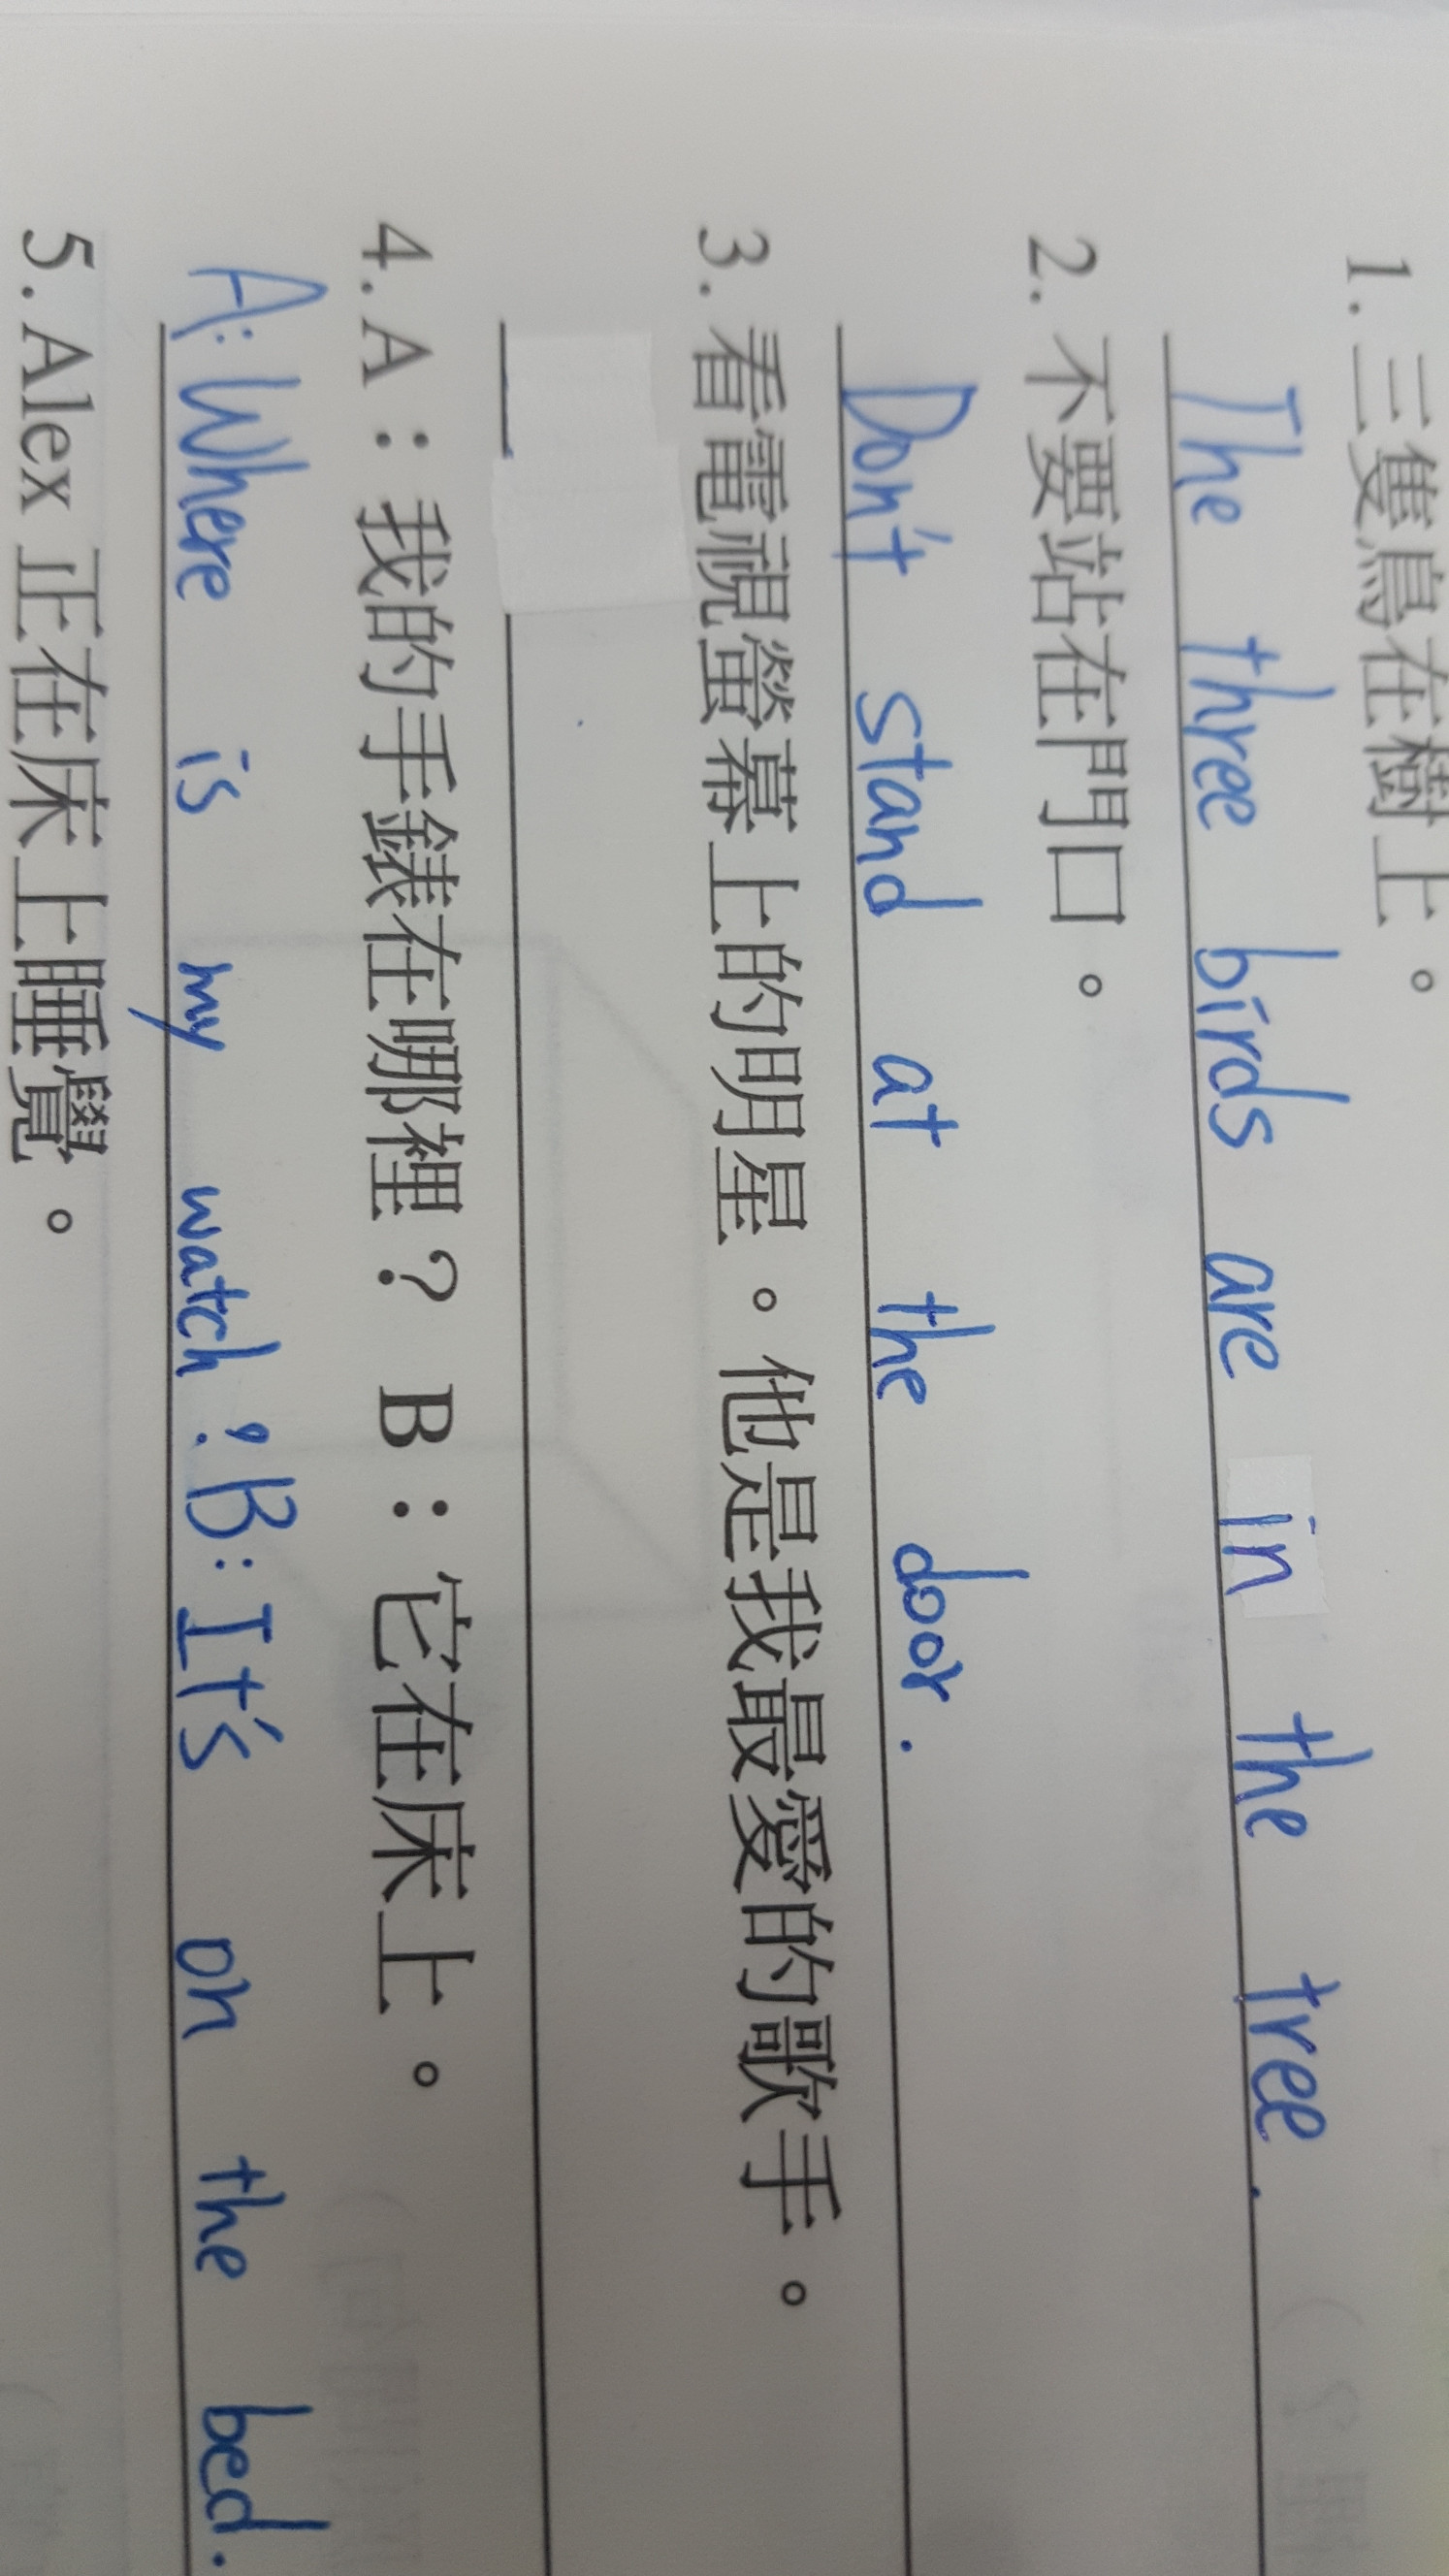 1. 三隻鳥在樹上。
The three birds are in the tree.
2. 不要站在門口。
Don't stand at the door.
3. 看電視螢幕上的明星。他是我最愛的歌手。
4. A：我的手錶在哪裡？ B：它在床上。
A: Where is my watch? B: It's on the bed.
5. Alex 正在床上睡覺。